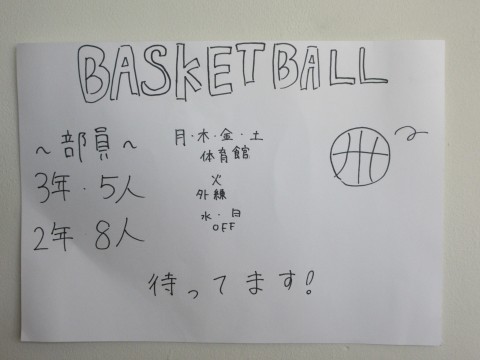 BASKETBALL
～部員～
3年・5人
2年 8人
月・木・金・土
体育館
火
外練
水・日
OFF
待ってます!